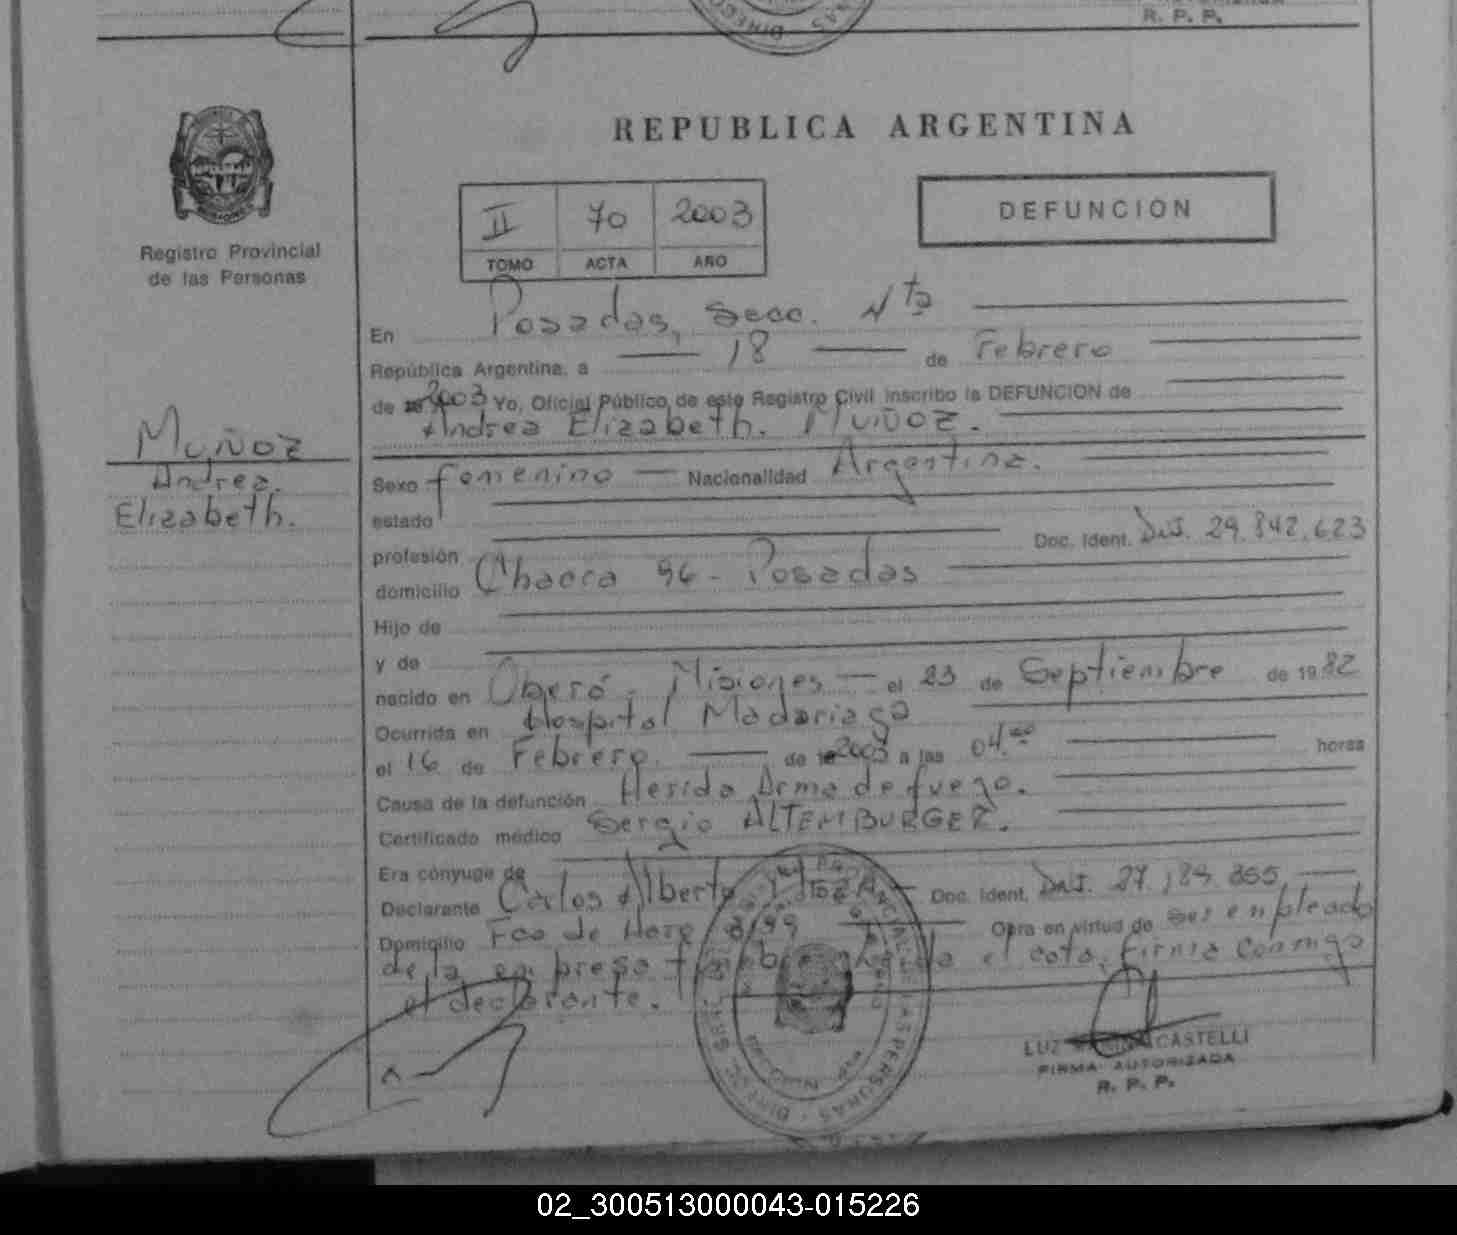 R. P. P.
REPUBLICA ARGENTINA
II 70 2003
TOMO ACTA AÑO
DEFUNCION
Registro Provincial
de las Personas
En Posadas, Secc. 4ta
República Argentina, a 18 de Febrero
de 2003 Yo, Oficial Público de este Registro Civil inscribo la DEFUNCION de
Andrea Elizabeth. MUÑOZ.
MUÑOZ
Andrea.
Elizabeth.
Sexo femenino Nacionalidad Argentina.
estado
profesión Doc. Ident. D.N.I. 29.842.623
domicilio Chacra 96 - Posadas
Hijo de
y de
nacido en Oberá - Misiones el 23 de Septiembre de 1982
Ocurrida en Hospital Madariaga
el 16 de Febrero de 2003 a las 04.00 horas
Causa de la defunción Herida Arma de fuego.
Certificado médico Sergio ALTEMBURGER.
Era cónyuge de
Declarante Carlos Alberto Doc. Ident. D.N.I. 27.189.355
Domicilio Fco de Haro Obra en virtud de ser empleado
de la empresa el acta, firma conmigo
el declarante.
LUZ CASTELLI
FIRMA AUTORIZADA
R. P. P.
02_300513000043-015226